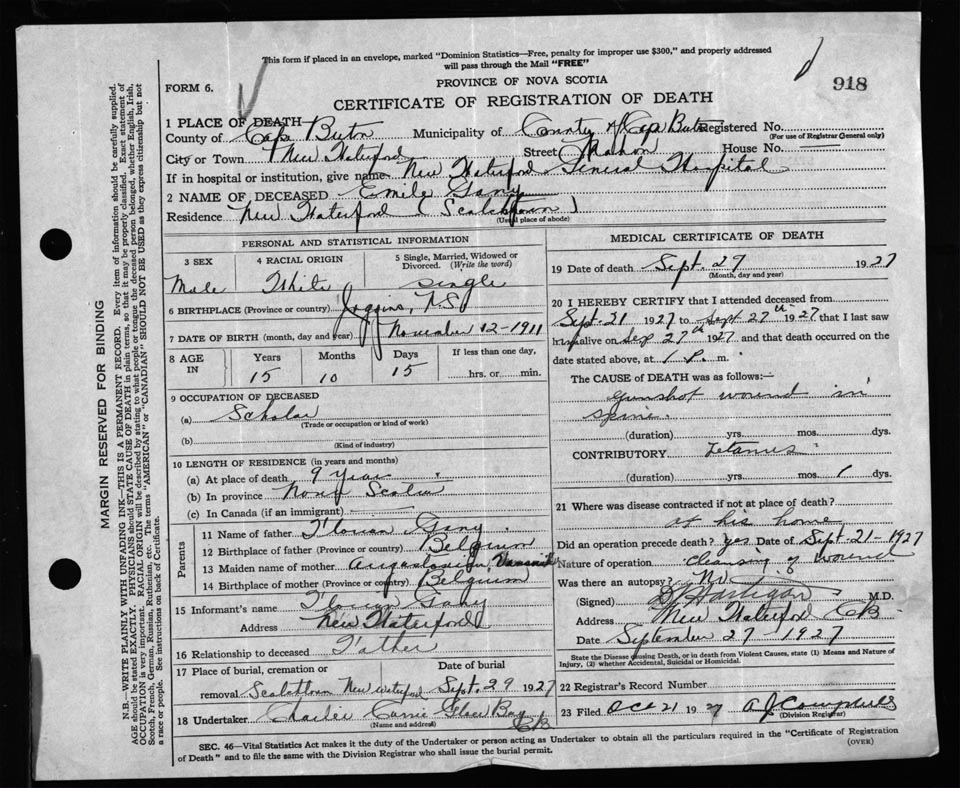 This form if placed in an envelope, marked "Dominion Statistics—Free, penalty for improper use $300," and properly addressed
will pass through the Mail "FREE"
918
FORM 6.
PROVINCE OF NOVA SCOTIA
CERTIFICATE OF REGISTRATION OF DEATH
1 PLACE OF DEATH—
County of Cape Breton Municipality of County of Cape Breton Registered No.
(For use of Registrar General only)
City or Town New Waterford Street Mahon House No.
If in hospital or institution, give name New Waterford General Hospital
2 NAME OF DECEASED Emile Gany
Residence New Waterford (Scotchtown)
(Usual place of abode)
PERSONAL AND STATISTICAL INFORMATION
3 SEX 4 RACIAL ORIGIN 5 Single, Married, Widowed or Divorced. (Write the word)
Male White Single
6 BIRTHPLACE (Province or country) Joggins, N.S.
7 DATE OF BIRTH (month, day and year) November 12-1911
8 AGE IN Years Months Days If less than one day,
15 10 15 hrs. or min.
9 OCCUPATION OF DECEASED
(a) Scholar
(Trade or occupation or kind of work)
(b)
(Kind of industry)
10 LENGTH OF RESIDENCE (in years and months)
(a) At place of death 9 years
(b) In province Nova Scotia
(c) In Canada (if an immigrant)
Parents
11 Name of father Florian Gany
12 Birthplace of father (Province or country) Belgium
13 Maiden name of mother
14 Birthplace of mother (Province or country) Belgium
15 Informant's name Florian Gany
Address New Waterford
16 Relationship to deceased Father
17 Place of burial, cremation or Date of burial
removal Scotchtown New Waterford Sept. 29 1927
18 Undertaker Charlie Currie Glace Bay C.B.
(Name and address)
MEDICAL CERTIFICATE OF DEATH
19 Date of death Sept. 27 1927
(Month, day and year)
20 I HEREBY CERTIFY that I attended deceased from
Sept. 21 1927 to Sept 27th 1927 that I last saw
him alive on Sep 27th 1927 and that death occurred on the
date stated above, at 1 P. m.
The CAUSE OF DEATH was as follows:—
Gunshot wound in
spine.
(duration) yrs. mos. dys.
CONTRIBUTORY Tetanus
(duration) yrs. mos. 1 dys.
21 Where was disease contracted if not at place of death?
at his home
Did an operation precede death? yes Date of Sept-21-1927
Nature of operation cleansing of wound
Was there an autopsy? No
(Signed) D Hartigan M.D.
Address New Waterford CB
Date September 27-1927
State the Disease causing Death, or in death from Violent Causes, state (1) Means and Nature of
Injury, (2) whether Accidental, Suicidal or Homicidal.
22 Registrar's Record Number
23 Filed Oct 21 1927 A J Campbell
(Division Registrar)
SEC. 46—Vital Statistics Act makes it the duty of the Undertaker or person acting as Undertaker to obtain all the particulars required in the "Certificate of Registration
of Death" and to file the same with the Division Registrar who shall issue the burial permit.
(OVER)
MARGIN RESERVED FOR BINDING
N.B.—WRITE PLAINLY WITH UNFADING INK—THIS IS A PERMANENT RECORD. Every item of information should be carefully supplied.
AGE should be stated EXACTLY. PHYSICIANS should STATE CAUSE OF DEATH in plain terms, so that it may be properly classified. Exact statement of
OCCUPATION is very important. RACIAL ORIGIN will be described by stating to what people or tongue the deceased person belonged, whether English, Irish,
Scotch, French, German, Russian, Ruthenian, etc. The terms "AMERICAN" or "CANADIAN" SHOULD NOT BE USED as they express citizenship but not
a race or people. See instructions on back of Certificate.